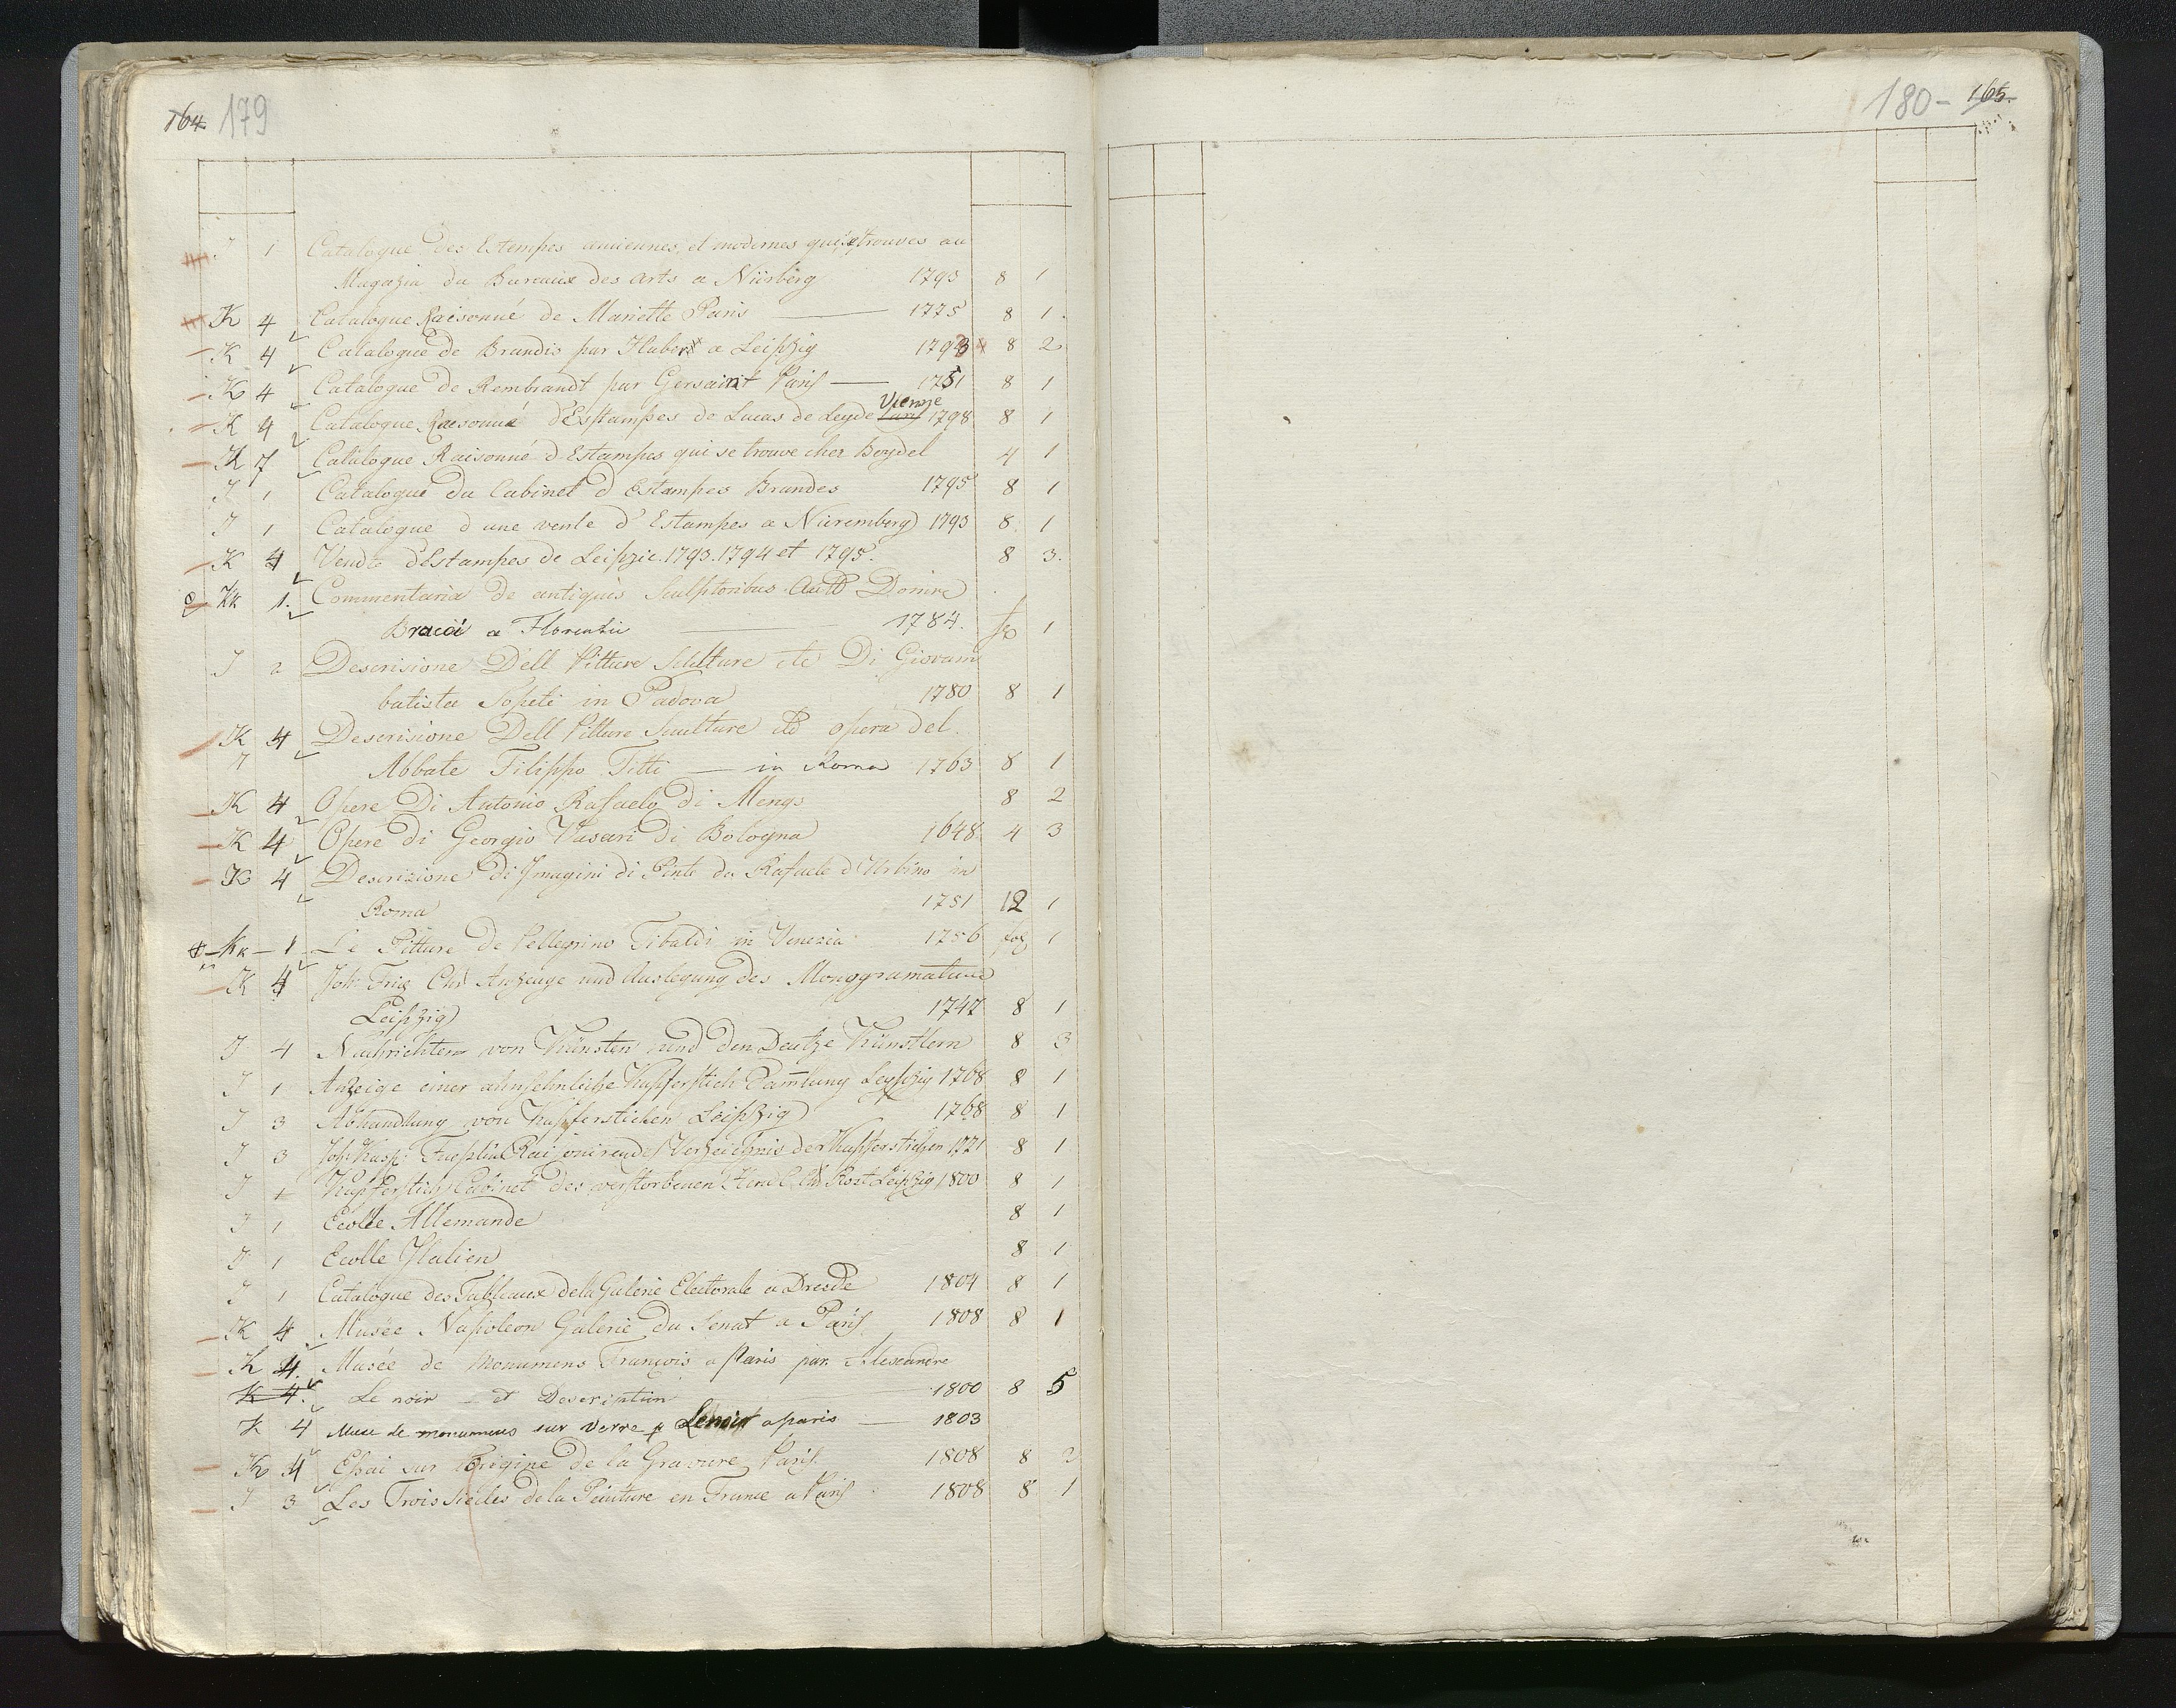 164. 179
J 1 Catalogue des Estempes anciennes, et modernes qui se trouves au
Magazin du Bureaux des arts a Nürbèrg 1793 8 1
K 4 Catalogue Raisonné de Mariette Paris — 1775 8 1.
K 4 Catalogue de Brandis par Huber a Leipzig 1793 8 2
K 4 Catalogue de Rembrandt par Gersaint Paris — 1751 8 1
Vienne
K 4 Catalogue Raesonné d'Estampes de Lucas de Leyde Paris 1798 8 1
K 7 Catalogue Raisonné d'Estampes qui se trouve cher Boydel 4 1
J 1 Catalogue du Cabinet d'Estampes Brandes 1795 8 1
J 1 Catalogue d'une vente d'Estampes a Nüremberg 1793 8 1
K 4 Vendte d'Estampes de Leipzic. 1793. 1794 et 1795. 8 3.
Kk 1. Commentaria de antiquis Sculptoribus Autt Domine
Bracci a Florentin — 1784. fo 1
J 2 Descrisione Dell Pitture Sculture etc Di Giovam
batista Sopeti in Padova 1780 8 1
K 4 Descrisione Dell Pitture Sculture etc opera del.
7 Abbate Filippo Titti — in Roma 1763 8 1
K 4 Opere Di Antonio Rafaelo di Mengs 8 2
K 4 Opere di Georgio Vasari di Bologna 1648 4 3
K 4 Descrizione di Jmagini di Pinte da Rafaele d'Urbino in
Roma 1751 12 1
Kk — 1 Le Pitture de Pellegrino Tibaldi in Venezia 1756 fol 1
K 4 Joh: Frid Chr Anzeuge und Auslegung des Monogramatum
Leipzig 1747 8 1
J 4 Nachrichten von Künsten und den Deutze Künstlern 8 3
J 1 Anzeige einer ahnsehnliche Kupferstich Samlung Leypzig 1768 8 1
J 3 Abhandlung von Kupferstichen Leipzig 1768 8 1
J 3 Joh: Kasp: Fueslin Raisonirende Verzeichnis der Kupferstichen 1771 8 1
J 1 Kupferstich Cabinet des verstorbenen Hern C. Chr Rost Leipzig 1800 8 1
J 1 Ecolle Allemande 8 1
J 1 Ecolle Italien 8 1
J 1 Catalogue des Tableaux de la Galerie Electorale a Dresde 1804 8 1
K 4 Musée Napoleon Galerie du Senat a Paris 1808 8 1
K 4. Musée de Monumens François a Paris par Alexandre
K 4. Le noir — et Description 1800 8 5
K 4 Muse de monumens sur verre p Lenoir a paris — 1803
K 4 Essai sur l'Origine de la Gravure Paris 1808 8 2
J 3 Les Trois siecles de la Peinture en France a Paris 1808 8 1
180 - 165.